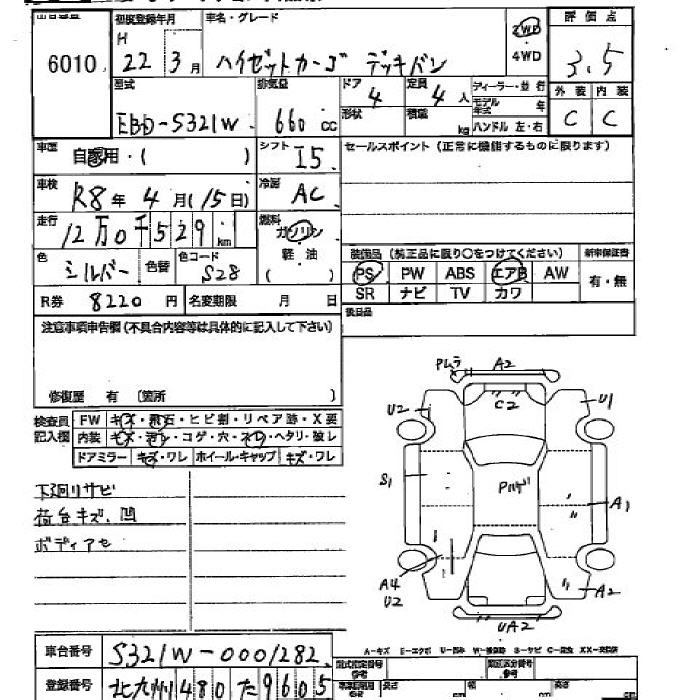 初度登録年月 車名・グレード 2WD 評価点
6010 H 22 3月 ハイゼットカーゴ デッキバン 4WD 3.5
型式 排気量 ドア 4 定員 4人 ディーラー・並行 外装 内装
EBD-S321W 660cc 形状 積載 kg モデル年式 年 ハンドル 左・右 C C
車歴 自家用・( ) シフト I5 セールスポイント(正常に機能するものに限ります)
車検 R8年 4月(15日) 冷房 AC
走行 12万0千529km 燃料 ガソリン 軽油 ( )
装備品(純正品に限り○をつけてください) 新車保証書
色 シルバー 色替 色コード S28
PS PW ABS エアB AW 有・無
SR ナビ TV カワ
R券 8220円 名変期限 月 日
後日品
注意事項申告欄(不具合内容等は具体的に記入して下さい)
修復歴 有 (箇所 )
検査員記入欄 FW キズ・飛石・ヒビ割・リペア跡・X要
内装 キズ・汚レ・コゲ・穴・スレ・ヘタリ・破レ
ドアミラー キズ・ワレ ホイール・キャップ キズ・フレ
下廻りサビ
荷台キズ、凹
ボディアセ
Pムラ A2
U2 C2 U1
S1 Pハゲ A1
A4 U2 A2
UA2
車台番号 S321W-0001282
登録番号 北九州480た9605